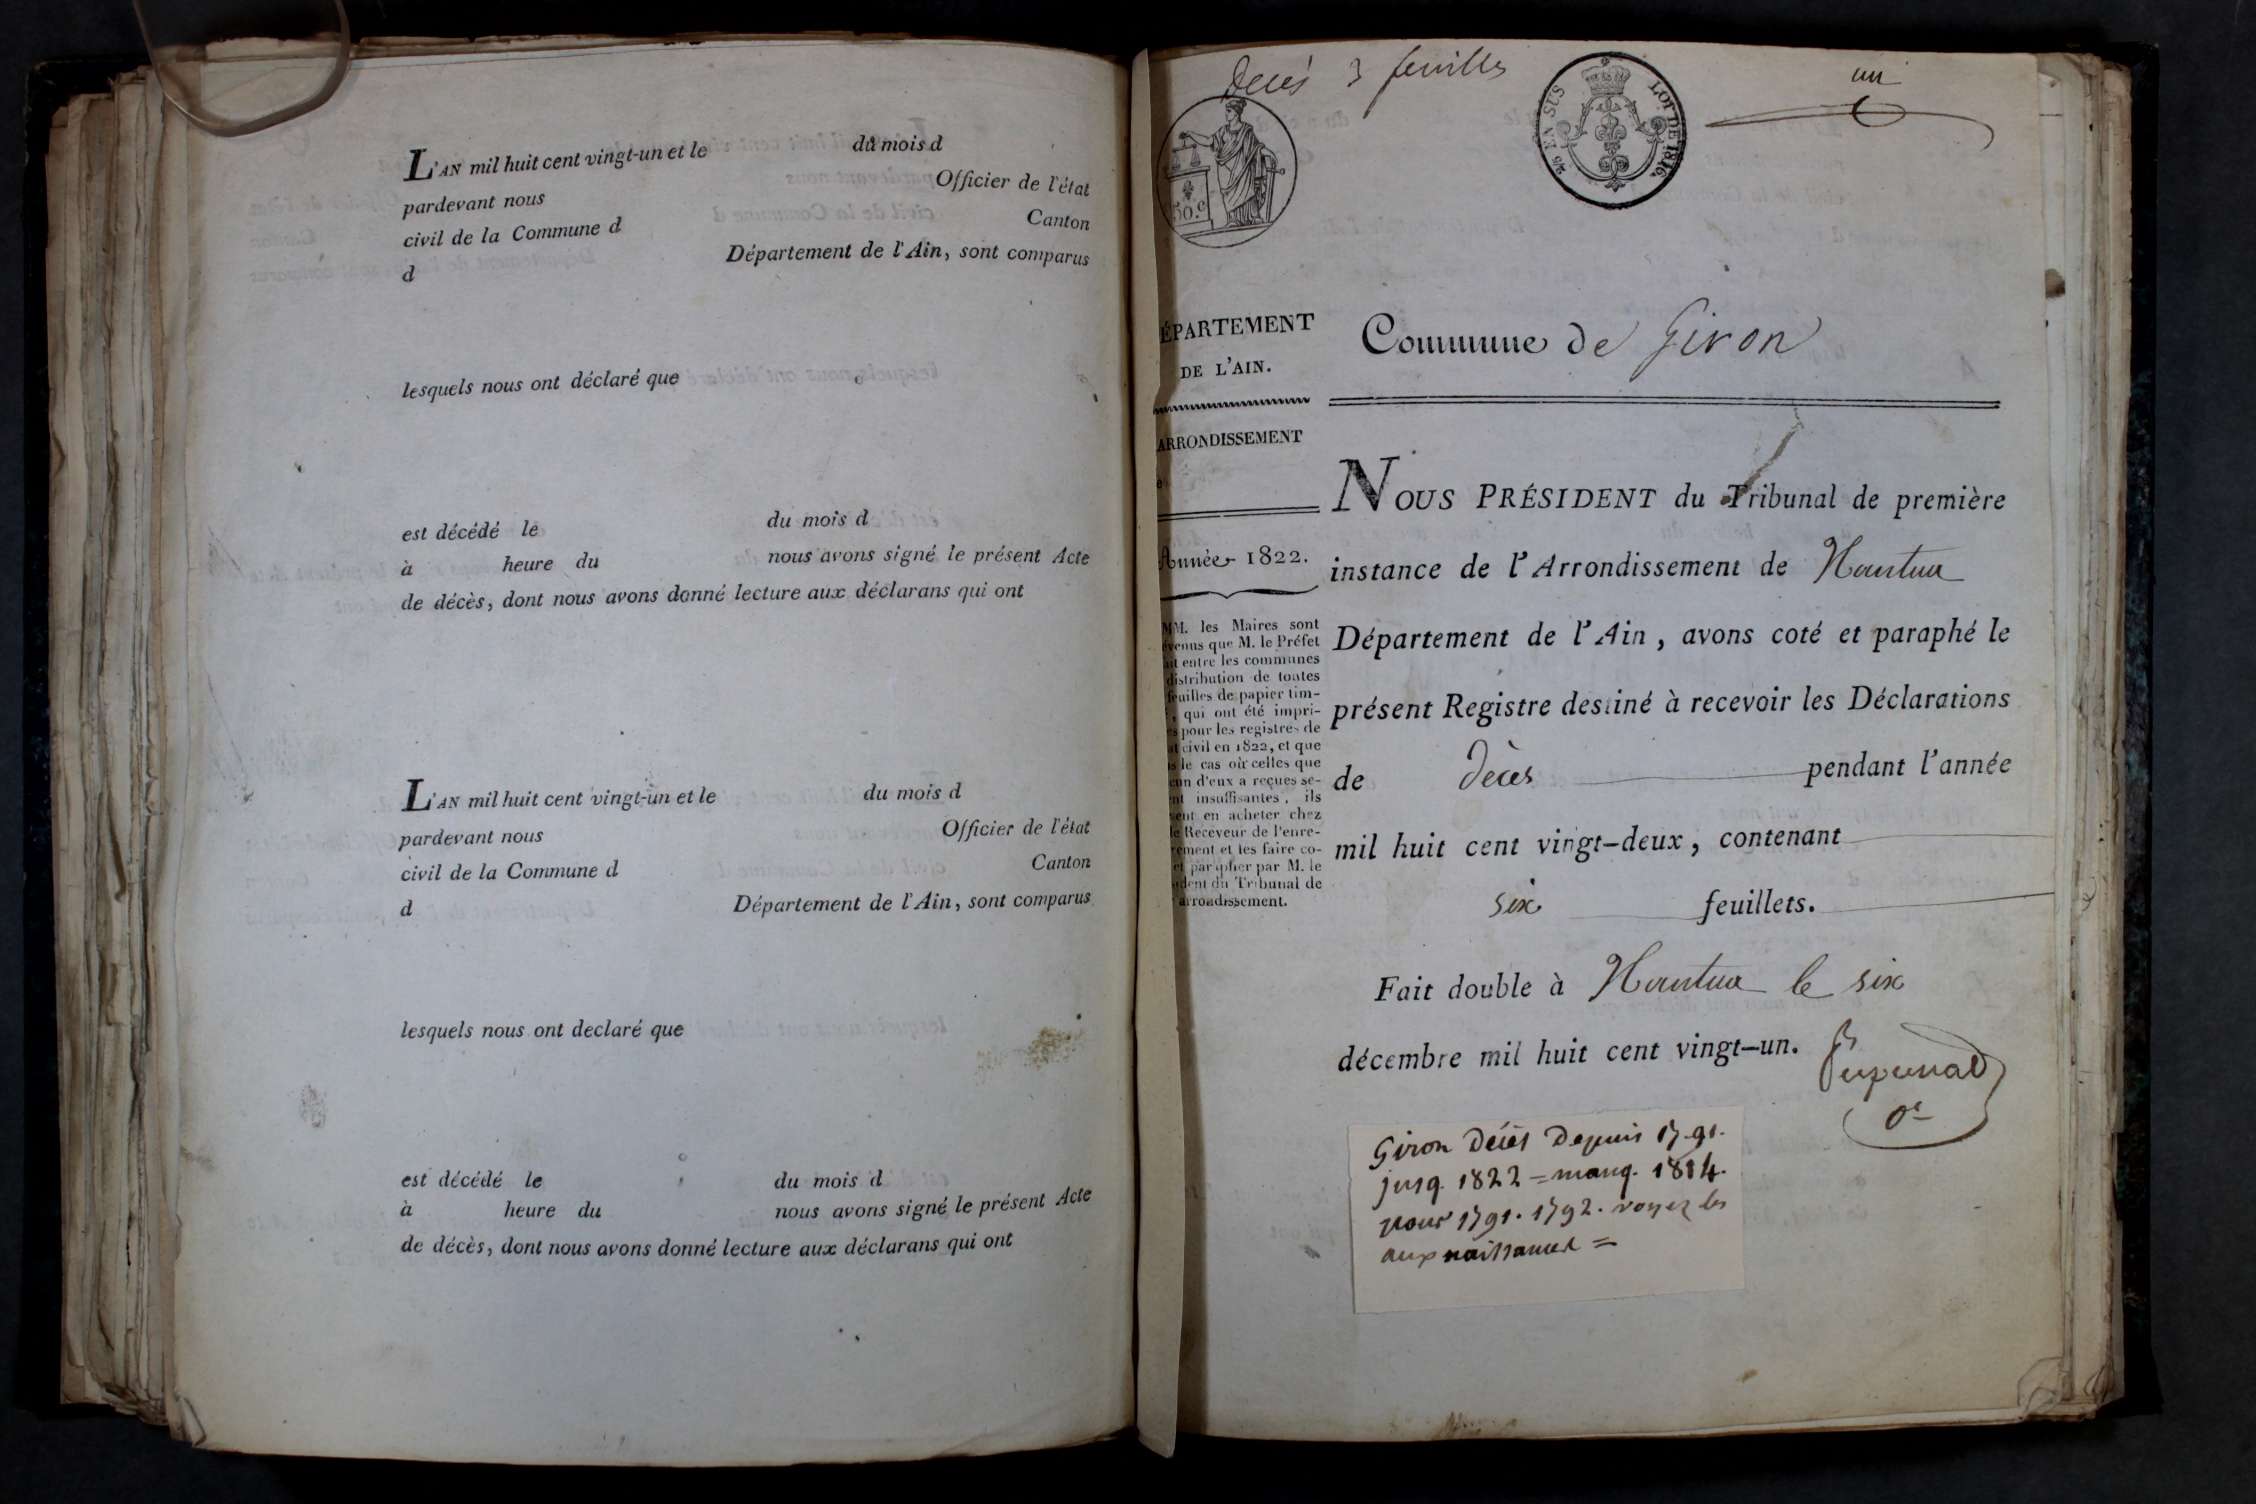 L'AN mil huit cent vingt-un et le du mois d
pardevant nous Officier de l'état
civil de la Commune d Canton
d Département de l'Ain, sont comparus
lesquels nous ont déclaré que
est décédé le du mois d
à heure du nous avons signé le présent Acte
de décès, dont nous avons donné lecture aux déclarans qui ont
L'AN mil huit cent vingt-un et le du mois d
pardevant nous Officier de l'état
civil de la Commune d Canton
d Département de l'Ain, sont comparus
lesquels nous ont declaré que
est décédé le du mois d
à heure du nous avons signé le présent Acte
de décès, dont nous avons donné lecture aux déclarans qui ont
Décès 3 feuilles
un
50.c
25 EN SUS LOI DE 1816.
ÉPARTEMENT
DE L'AIN.
ARRONDISSEMENT
Année 1822.
MM. les Maires sont
évenus que M. le Préfet
ait entre les communes
distribution de toutes
feuilles de papier tim-
, qui ont été impri-
es pour les registres de
at civil en 1822, et que
s le cas où celles que
cun d'eux a reçues se-
nt insuffisantes, ils
vent en acheter chez
le Receveur de l'enre-
rement et les faire co-
et parapher par M. le
sident du Tribunal de
arrondissement.
Commune de Giron
NOUS PRÉSIDENT du Tribunal de première
instance de l'Arrondissement de Nantua
Département de l'Ain, avons coté et paraphé le
présent Registre destiné à recevoir les Déclarations
de Décès pendant l'année
mil huit cent vingt-deux, contenant
six feuillets.
Fait double à Nantua le six
décembre mil huit cent vingt-un.
Giron Décès Depuis 1791.
jusq. 1822 = manq. 1814.
pour 1791. 1792. voyez les
aux naissances =